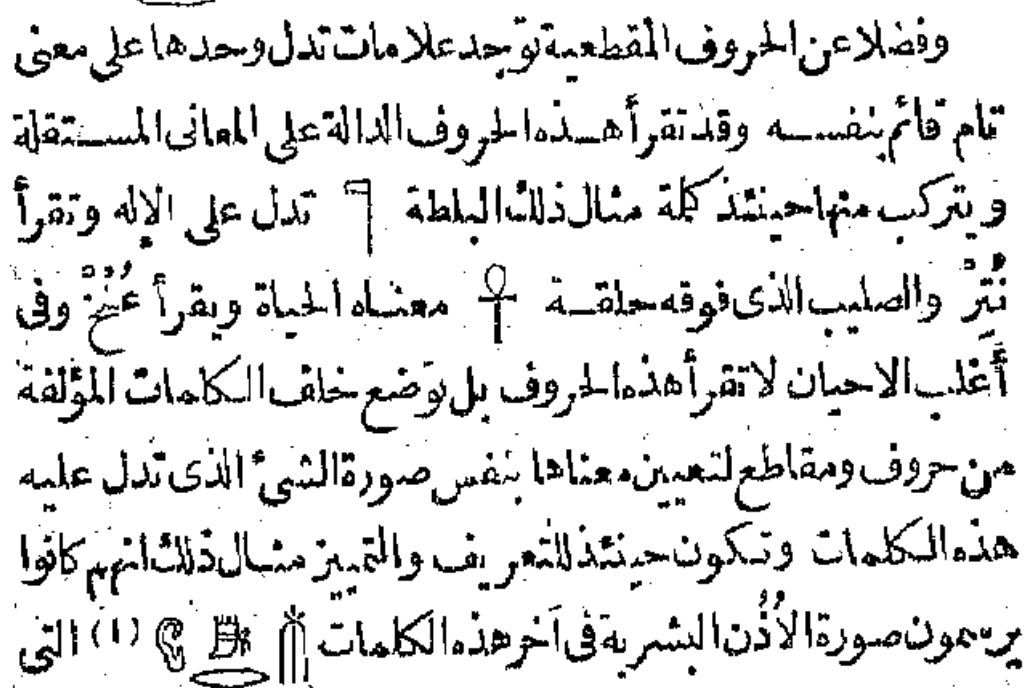 وفضلا عن الحروف المقطعية توجد علامات تدل وحدها على معنى
تام قائم بنفسه وقد تقرأ هذه الحروف الدالة على المعانى المستقلة
ويتركب منها حينئذ كلمة مثال ذلك البلطة 𓊹 تدل على الاله وتقرأ
نُتَرْ والصليب الذى فوقه حلقة 𓋹 معناه الحياة ويقرأ عُنْخْ وفى
أغلب الاحيان لا تقرأ هذه الحروف بل توضع خلف الكلمات المؤلفة
من حروف ومقاطع لتعيين معناها بنفس صورة الشىء الذى تدل عليه
هذه الكلمات وتكون حينئذ للتعريف والتمييز مثال ذلك انهم كانوا
يرسمون صورة الأُذُن البشرية فى آخر هذه الكلمات (١) التى